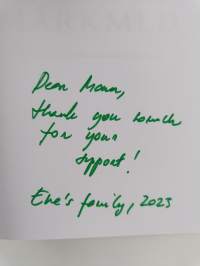 Dear Mann,
thank you so much
for your
support!
Eke's family, 2023